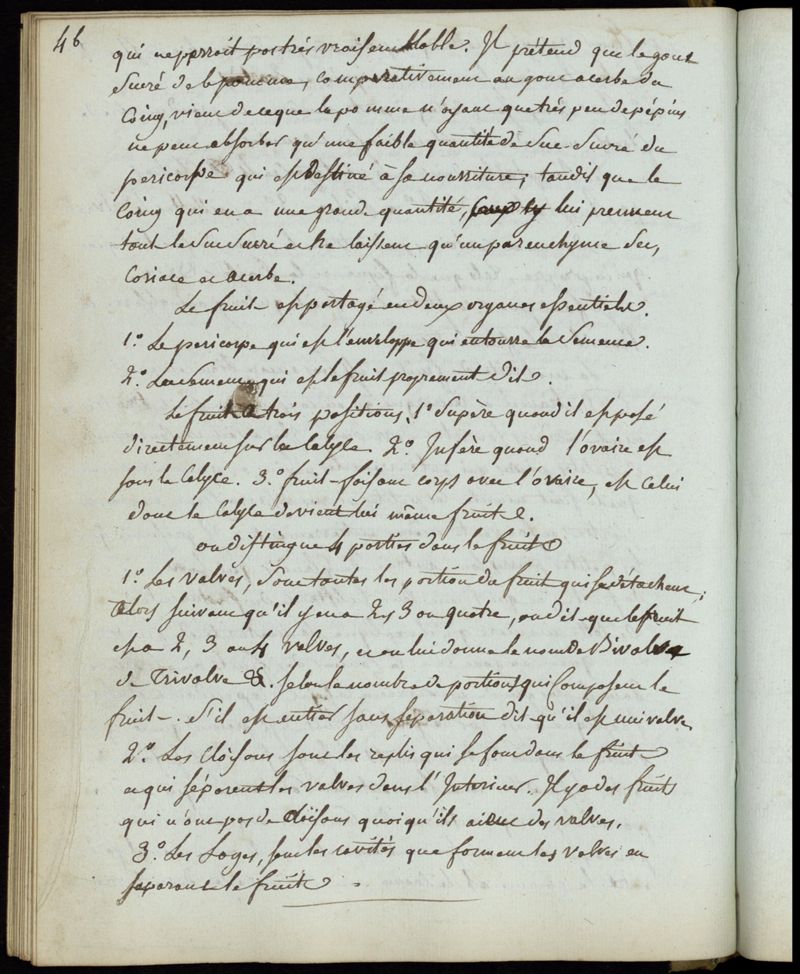 46
qui ne perroit pas très vraisemblable. Il prétend que le gout
sucré de la pomme, comparativement au gout acerbe du
Coing, vient de ce que la pomme n'ayant que très peu de pépins
ne peut absorber qu'une faible quantité de suc sucré du
pericarpe qui est destiné à sa nourriture; tandis que le
Coing qui en a une grande quantité, lui prennent
tout le suc sucré et ne laissent qu'un parenchyme sec,
Coriace et acerbe.
Le fruit est partagé en deux organes essentiels.
1.° Le pericarpe qui est l'enveloppe qui entourre la semence.
2.° La semence qui est le fruit proprement dit.
Le fruit a trois positions, 1.° Supère quand il est posé
directement sur le Calyce 2.° Infère quand l'ovaire est
sous le Calyce. 3.° fruit faisant corps avec l'ovaire, est celui
dont le Calyce devient lui même fruit.
on distingue 4 parties dans le fruit
1.° Les valves, sont toutes les portion du fruit qui se détachent;
alors suivant qu'il y en a 2, 3 ou quatre, on dit que le fruit
est a 2, 3 ou 4 valves, et on lui donne le nom de Bivalve
de Trivalve &. selon le nombre de portions qui Composent le
fruit. S'il est entier sans séparation dit qu'il est univalve
2.° Les Cloisons sont les replis qui se font dans le fruit
et qui séparent les valves dans l'Interieur. Il y a des fruits
qui n'ont pas de Cloisons quoiqu'ils aient des valves.
3.° Les Loges, sont les cavités que forment les valves en
separant le fruit.